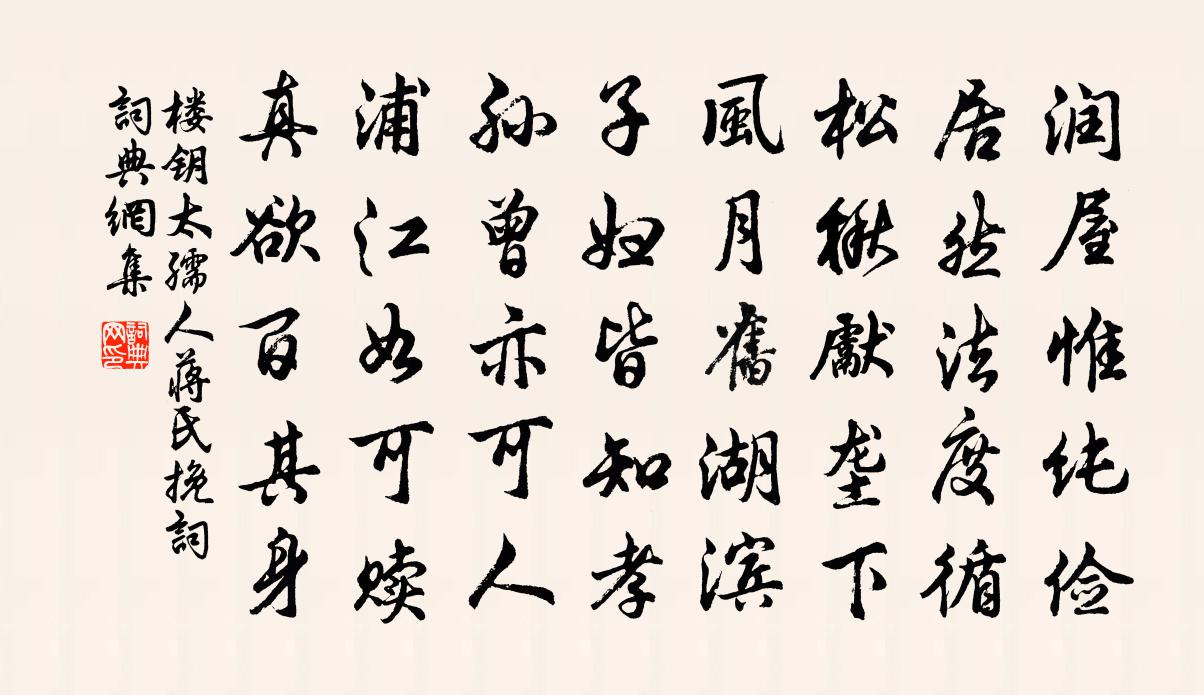 润屋惟纯俭
居然法度循
松楸獻垄下
風月舊湖滨
子妇皆知孝
孙曾亦可人
浦江如可赎
真欲百其身
楼钥太孺人蒋氏挽詞
詞典網集
詞典网印